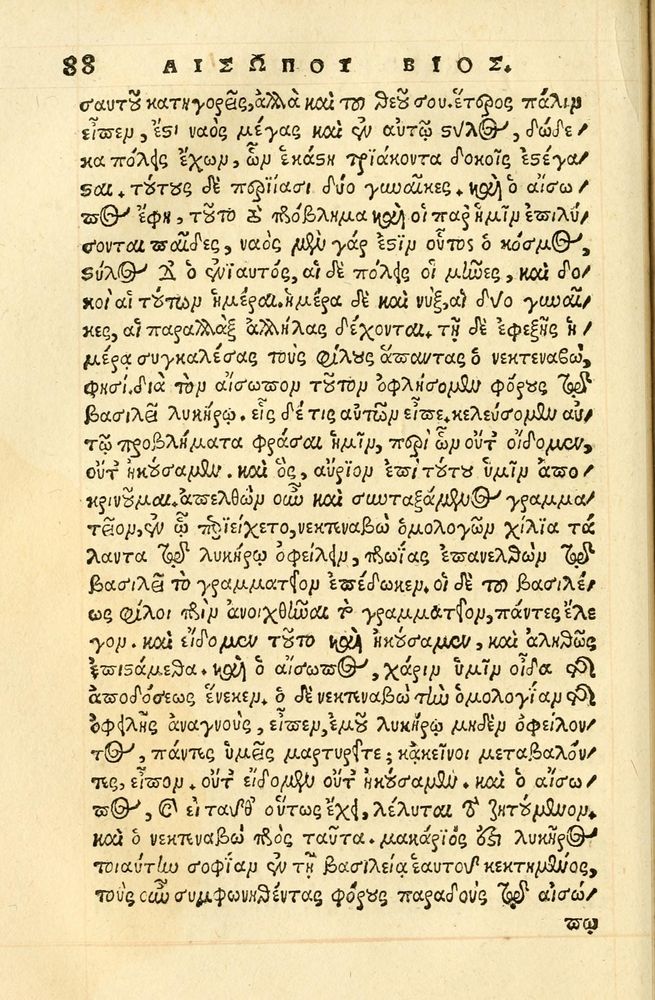 88 ΑΙΣΩΠΟΥ ΒΙΟΣ.
σαυτοῦ κατηγορεῖς, ἀλλὰ καὶ τοῦ θεοῦ σου. ἕτερος πάλιν
εἶπεν, ἔστι ναὸς μέγας καὶ ἐν αὐτῷ στύλος, δώδε/
κα πόλεις ἔχων, ὧν ἑκάστη τριάκοντα δοκοῖς ἐστέγα/
σται. τούτους δὲ περιΐασι δύο γυναῖκες. καὶ ὁ αἴσω/
πος ἔφη, τοῦτο τὸ πρόβλημα καὶ οἱ παρ' ἡμῖν ἐπιλύ/
σονται παῖδες, ναὸς μὲν γάρ ἐστιν οὗτος ὁ κόσμος,
στύλος δὲ ὁ ἐνιαυτός, αἱ δὲ πόλεις οἱ μῆνες, καὶ δο/
κοὶ αἱ τούτων ἡμέραι. ἡμέρα δὲ καὶ νὺξ, αἱ δύο γυναῖ/
κες, αἳ παραλλὰξ ἀλλήλας δέχονται. τῇ δὲ ἐφεξῆς ἡ/
μέρᾳ συγκαλέσας τοὺς φίλους ἅπαντας ὁ νεκτεναβὼ,
φησὶ. διὰ τὸν αἴσωπον τοῦτον ὀφλήσομεν φόρους τῷ
βασιλεῖ λυκήρῳ. εἷς δέ τις αὐτῶν εἶπε. κελεύσομεν αὐ/
τῷ προβλήματα φράσαι ἡμῖν, περὶ ὧν οὔτ' οἴδομεν,
οὔτ' ἠκούσαμεν. καὶ ὃς, αὔριον ἐπὶ τούτου ὑμῖν ἀπο/
κρινοῦμαι. ἀπελθὼν οὖν καὶ συνταξάμενος γραμμα/
τεῖον, ἐν ᾧ περιείχετο, νεκτεναβὼ ὁμολογῶν χίλια τά
λαντα τῷ λυκήρῳ ὀφείλειν, πρωΐας ἐπανελθὼν τῷ
βασιλεῖ τὸ γραμματεῖον ἐπέδωκεν. οἱ δὲ τοῦ βασιλέ/
ως φίλοι πρὶν ἀνοιχθῆναι τὸ γραμματεῖον, πάντες ἔλε
γον. καὶ εἴδομεν τοῦτο καὶ ἠκούσαμεν, καὶ ἀληθῶς
ἐπιστάμεθα. καὶ ὁ αἴσωπος, χάριν ὑμῖν οἶδα τῆς
ἀποδόσεως ἕνεκεν. ὁ δὲ νεκτεναβὼ τὴν ὁμολογίαν τῆς
ὀφειλῆς ἀναγνοὺς, εἶπεν, ἐμοῦ λυκήρῳ μηδὲν ὀφείλον/
τος, πάντες ὑμεῖς μαρτυρεῖτε; κἀκεῖνοι μεταβαλόν/
τες, εἶπον. οὔτ' εἴδομεν οὔτ' ἠκούσαμεν. καὶ ὁ αἴσω/
πος, καὶ εἰ ταῦθ' οὕτως ἔχει, λέλυται τὸ ζητούμενον.
καὶ ὁ νεκτεναβὼ πρὸς ταῦτα. μακάριός ἐστι λυκῆρος
τοιαύτην σοφίαν ἐν τῇ βασιλείᾳ ἑαυτοῦ κεκτημένος,
τοὺς οὖν συμφωνηθέντας φόρους παραδοὺς τῷ αἰσώ/
πῳ